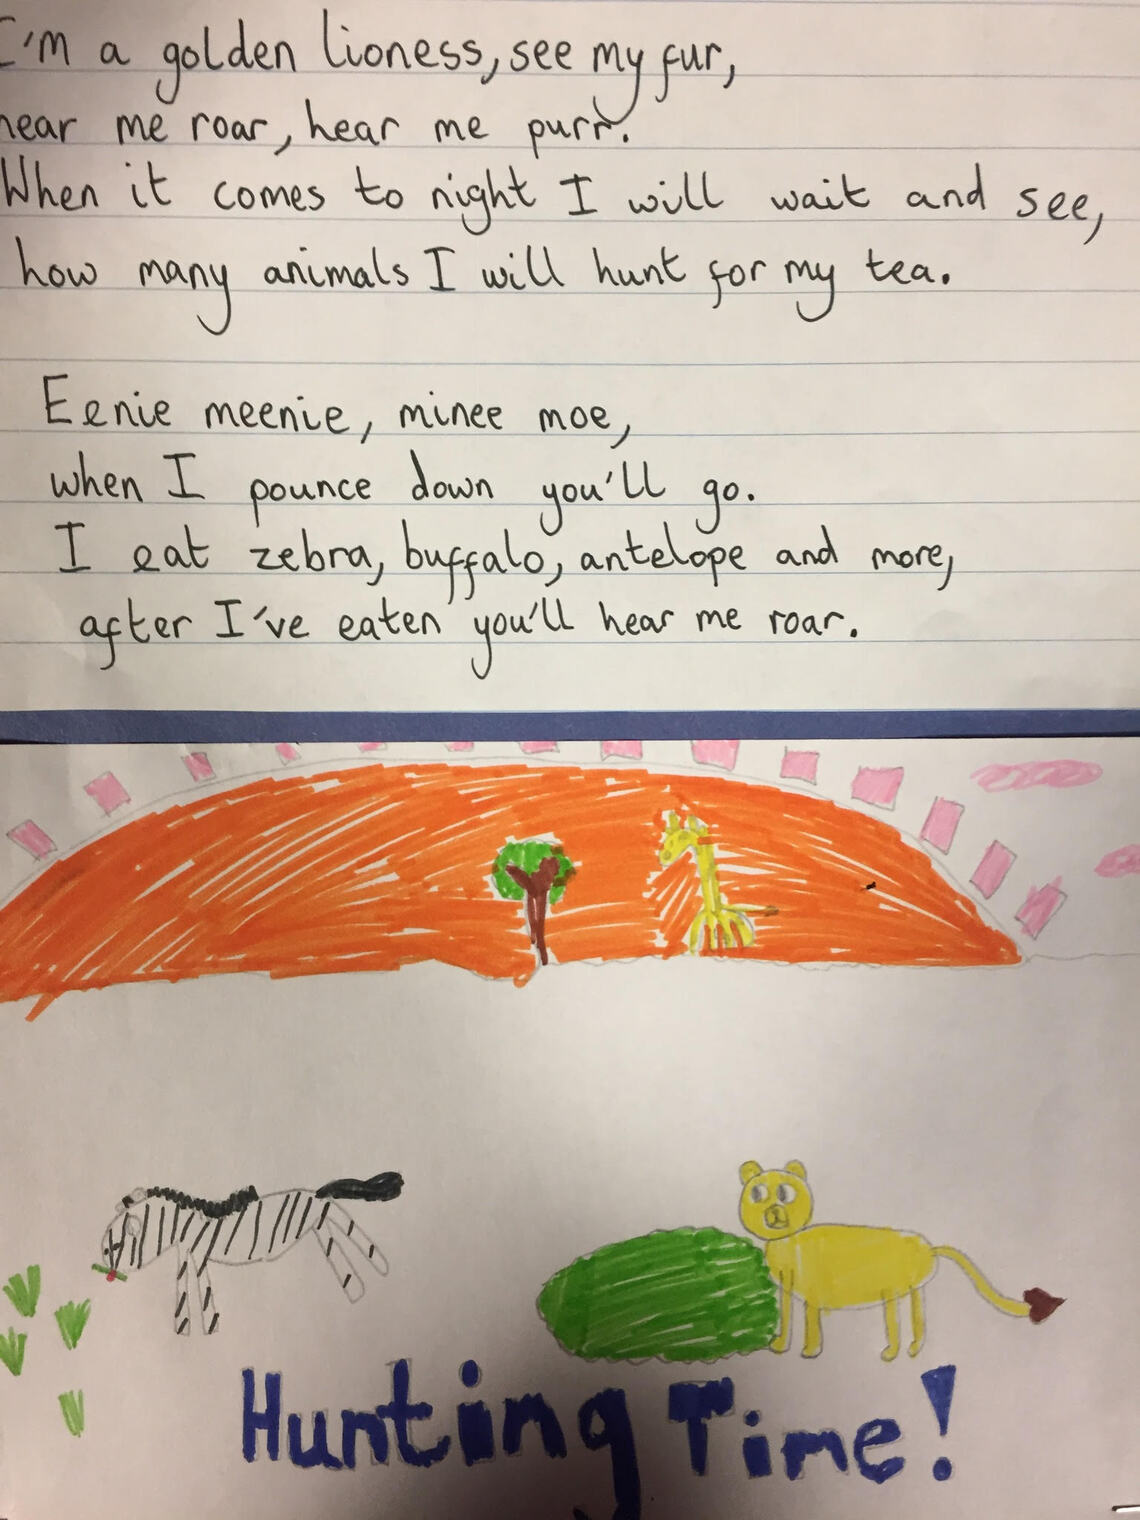 I'm a golden lioness, see my fur,
hear me roar, hear me purr.
When it comes to night I will wait and see,
how many animals I will hunt for my tea.
Eenie meenie, minee moe,
when I pounce down you'll go.
I eat zebra, buffalo, antelope and more,
after I've eaten you'll hear me roar.
Hunting Time!